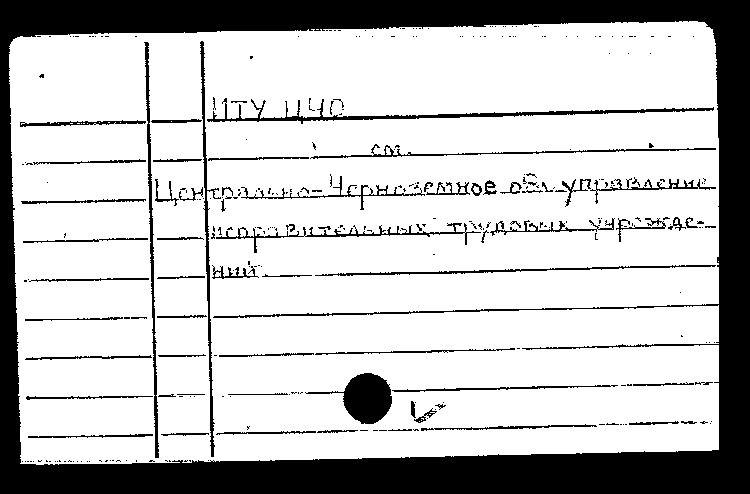 ИТУ ЦЧО
см.
Центрально-Черноземное обл. управление
исправительных трудовых учрежде-
ний.